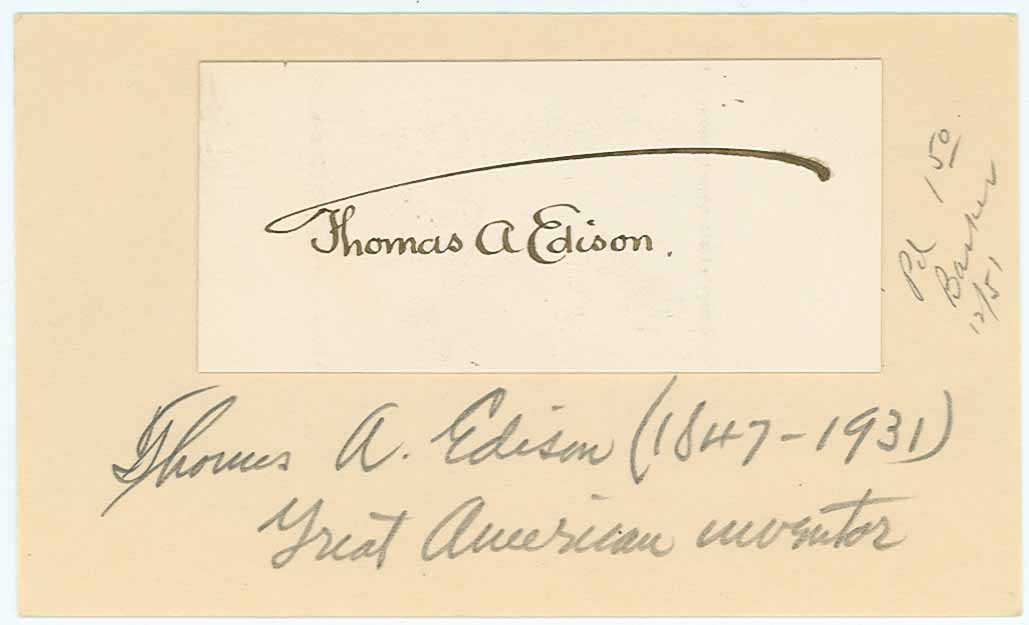 Thomas A Edison.
Thomas A. Edison (1847-1931)
Great American inventor
Pd 1 50
Barker
12/51